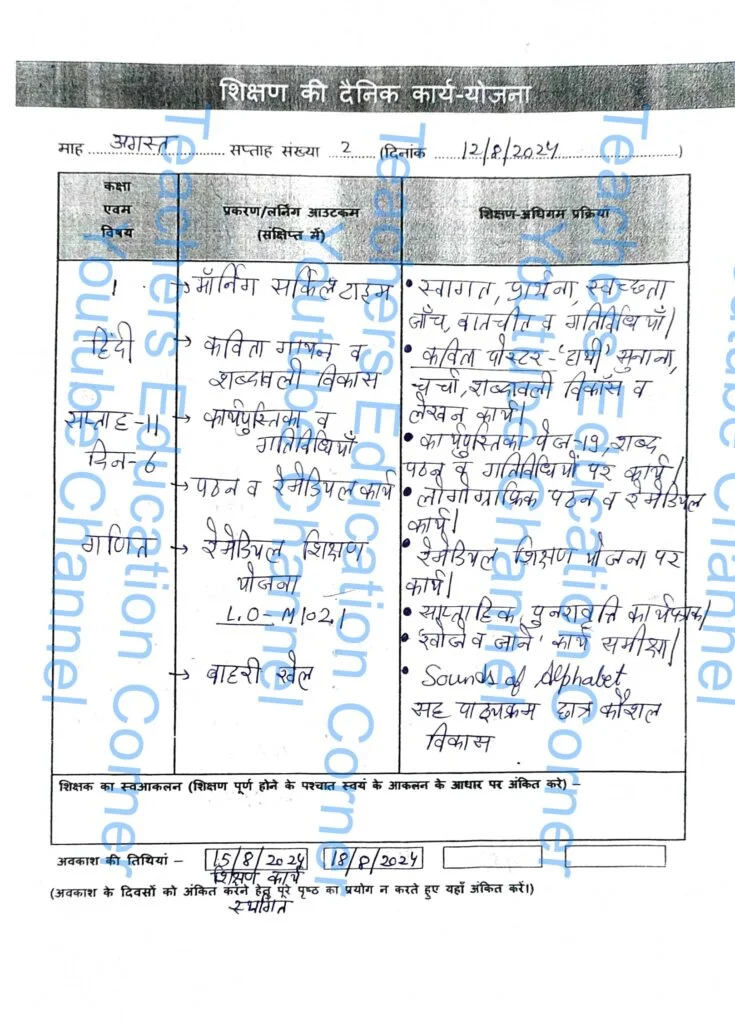 शिक्षण की दैनिक कार्य-योजना
माह अगस्त सप्ताह संख्या 2 (दिनांक 12/8/2024)
कक्षा एवम विषय
प्रकरण/लर्निंग आउटकम (संक्षिप्त में)
शिक्षण-अधिगम प्रक्रिया
1
→ मॉर्निंग सर्किल टाइम
• स्वागत, प्रार्थना, स्वच्छता
जाँच, वातचीत व गतिविधियाँ।
हिंदी
→ कविता गायन व
शब्दावली विकास
• कविता पोस्टर-'हाथी' सुनाना,
चर्चा, शब्दावली विकास व
लेखन कार्य।
सप्ताह-11
दिन-6
→ कार्यपुस्तिका व
गतिविधियाँ
• कार्यपुस्तिका पेज-19, शब्द
पठन व गतिविधियों पर कार्य।
→ पठन व रेमेडियल कार्य
• लोगोग्राफिक पठन व रेमेडियल
कार्य।
गणित
→ रेमेडियल शिक्षण
योजना
L.O-M102.1
• रेमेडियल शिक्षण योजना पर
कार्य।
• साप्ताहिक, पुनरावृत्ति कार्यपत्रक।
• 'खोजें व जाने' कार्य समीक्षा।
→ बाहरी खेल
• Sounds of Alphabet
सह पाठ्यक्रम छात्र कौशल
विकास
शिक्षक का स्वआकलन (शिक्षण पूर्ण होने के पश्चात स्वयं के आकलन के आधार पर अंकित करे) –
अवकाश की तिथियां – 15/8/2024 18/8/2024
शिक्षण कार्य
(अवकाश के दिवसों को अंकित करने हेतु पूरे पृष्ठ का प्रयोग न करते हुए यहाँ अंकित करें।)
स्थगित
Teachers Education Corner
Youtube Channel
Teachers Education Corner
Youtube Channel
Teachers Education Corner
Youtube Channel